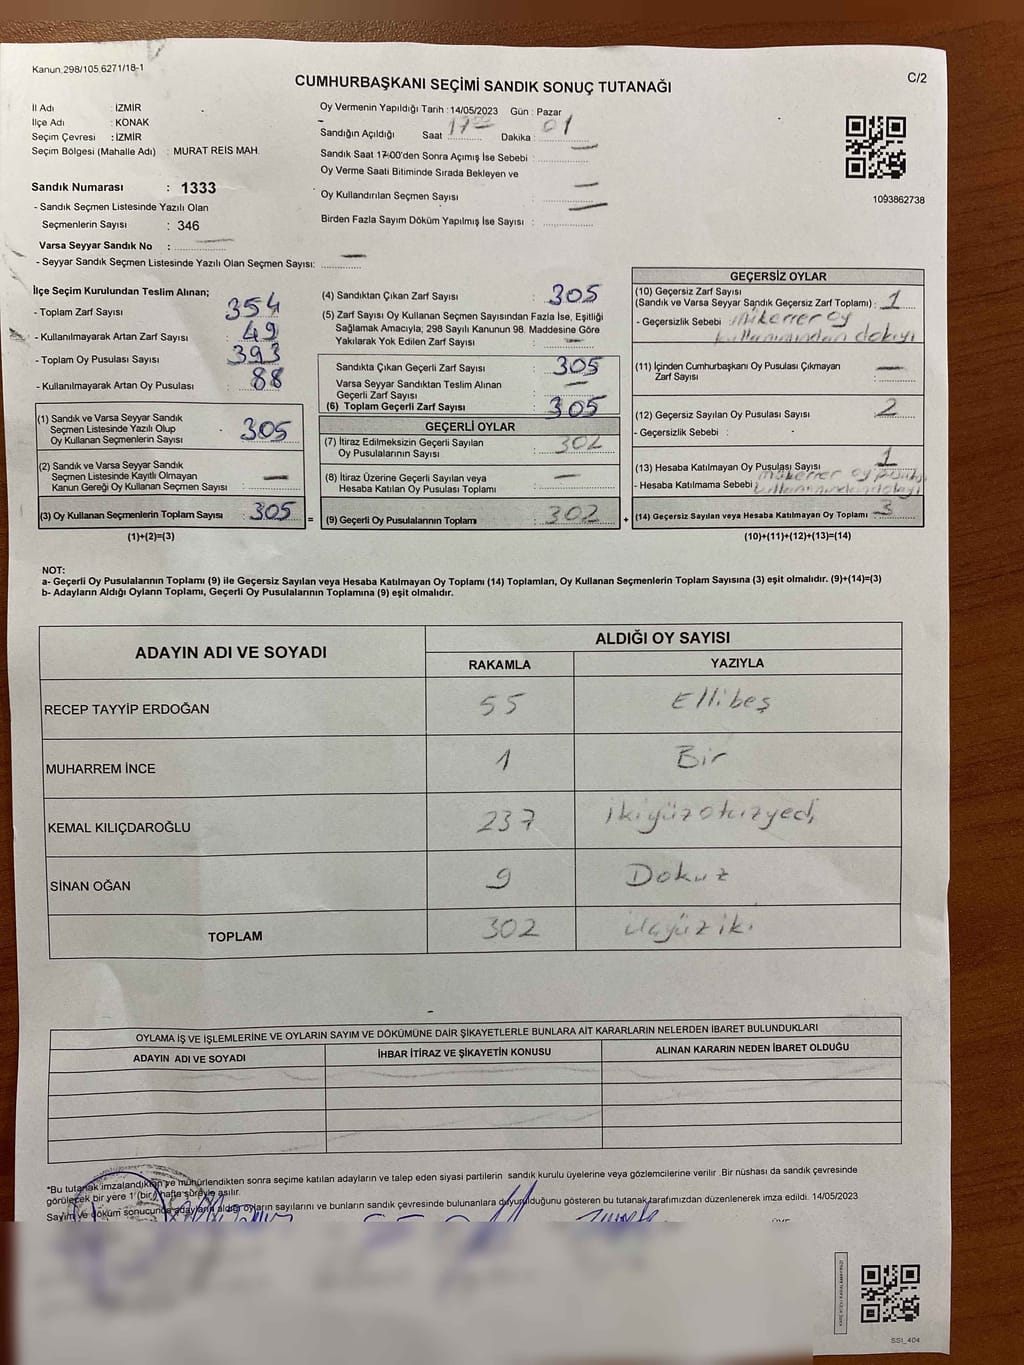 Kanun 298/105,6271/18-1
C/2
CUMHURBAŞKANI SEÇİMİ SANDIK SONUÇ TUTANAĞI
İl Adı : İZMİR
İlçe Adı : KONAK
Seçim Çevresi : İZMİR
Seçim Bölgesi (Mahalle Adı) : MURAT REİS MAH.
Sandık Numarası : 1333
- Sandık Seçmen Listesinde Yazılı Olan
Seçmenlerin Sayısı : 346
Varsa Seyyar Sandık No :
- Seyyar Sandık Seçmen Listesinde Yazılı Olan Seçmen Sayısı:
Oy Vermenin Yapıldığı Tarih : 14/05/2023 Gün : Pazar
Sandığın Açıldığı Saat 17:00 Dakika : 01
Sandık Saat 17:00'den Sonra Açımış İse Sebebi :
Oy Verme Saati Bitiminde Sırada Bekleyen ve
Oy Kullandırılan Seçmen Sayısı :
Birden Fazla Sayım Döküm Yapılmış İse Sayısı :
1093862738
İlçe Seçim Kurulundan Teslim Alınan;
- Toplam Zarf Sayısı : 354
- Kullanılmayarak Artan Zarf Sayısı : 49
- Toplam Oy Pusulası Sayısı : 393
- Kullanılmayarak Artan Oy Pusulası : 88
(1) Sandık ve Varsa Seyyar Sandık
Seçmen Listesinde Yazılı Olup
Oy Kullanan Seçmenlerin Sayısı : 305
(2) Sandık ve Varsa Seyyar Sandık
Seçmen Listesinde Kayıtlı Olmayan
Kanun Gereği Oy Kullanan Seçmen Sayısı :
(3) Oy Kullanan Seçmenlerin Toplam Sayısı : 305
(1)+(2)=(3)
(4) Sandıktan Çıkan Zarf Sayısı : 305
(5) Zarf Sayısı Oy Kullanan Seçmen Sayısından Fazla İse, Eşitliği
Sağlamak Amacıyla; 298 Sayılı Kanunun 98. Maddesine Göre
Yakılarak Yok Edilen Zarf Sayısı :
Sandıkta Çıkan Geçerli Zarf Sayısı : 305
Varsa Seyyar Sandıktan Teslim Alınan
Geçerli Zarf Sayısı :
(6) Toplam Geçerli Zarf Sayısı : 305
GEÇERLİ OYLAR
(7) İtiraz Edilmeksizin Geçerli Sayılan
Oy Pusulalarının Sayısı : 302
(8) İtiraz Üzerine Geçerli Sayılan veya
Hesaba Katılan Oy Pusulası Toplamı :
= (9) Geçerli Oy Pusulalarının Toplamı : 302 +
GEÇERSİZ OYLAR
(10) Geçersiz Zarf Sayısı
(Sandık ve Varsa Seyyar Sandık Geçersiz Zarf Toplamı) : 1
- Geçersizlik Sebebi : Mükerrer oy
kullanımından dolayı
(11) İçinden Cumhurbaşkanı Oy Pusulası Çıkmayan
Zarf Sayısı :
(12) Geçersiz Sayılan Oy Pusulası Sayısı : 2
- Geçersizlik Sebebi :
(13) Hesaba Katılmayan Oy Pusulası Sayısı : 1
- Hesaba Katılmama Sebebi : mükerrer oy
kullanımından dolayı
(14) Geçersiz Sayılan veya Hesaba Katılmayan Oy Toplamı : 3
(10)+(11)+(12)+(13)=(14)
NOT:
a- Geçerli Oy Pusulalarının Toplamı (9) ile Geçersiz Sayılan veya Hesaba Katılmayan Oy Toplamı (14) Toplamları, Oy Kullanan Seçmenlerin Toplam Sayısına (3) eşit olmalıdır. (9)+(14)=(3)
b- Adayların Aldığı Oyların Toplamı, Geçerli Oy Pusulalarının Toplamına (9) eşit olmalıdır.
ADAYIN ADI VE SOYADI ALDIĞI OY SAYISI
RAKAMLA YAZIYLA
RECEP TAYYİP ERDOĞAN 55 Ellibeş
MUHARREM İNCE 1 Bir
KEMAL KILIÇDAROĞLU 237 ikiyüzotuzyedi
SİNAN OĞAN 9 Dokuz
TOPLAM 302 Üçyüziki
OYLAMA İŞ VE İŞLEMLERİNE VE OYLARIN SAYIM VE DÖKÜMÜNE DAİR ŞİKAYETLERLE BUNLARA AİT KARARLARIN NELERDEN İBARET BULUNDUKLARI
ADAYIN ADI VE SOYADI İHBAR İTİRAZ VE ŞİKAYETİN KONUSU ALINAN KARARIN NEDEN İBARET OLDUĞU
*Bu tutanak imzalandıktan ve mühürlendikten sonra seçime katılan adayların ve talep eden siyasi partilerin sandık kurulu üyelerine veya gözlemcilerine verilir .Bir nüshası da sandık çevresinde
görülecek bir yere 1 (bir) hafta süreyle asılır.
Sayım ve döküm sonucunda adayların aldığı oyların sayılarını ve bunların sandık çevresinde bulunanlara duyurulduğunu gösteren bu tutanak tarafımızdan düzenlenerek imza edildi. 14/05/2023
SSI_404